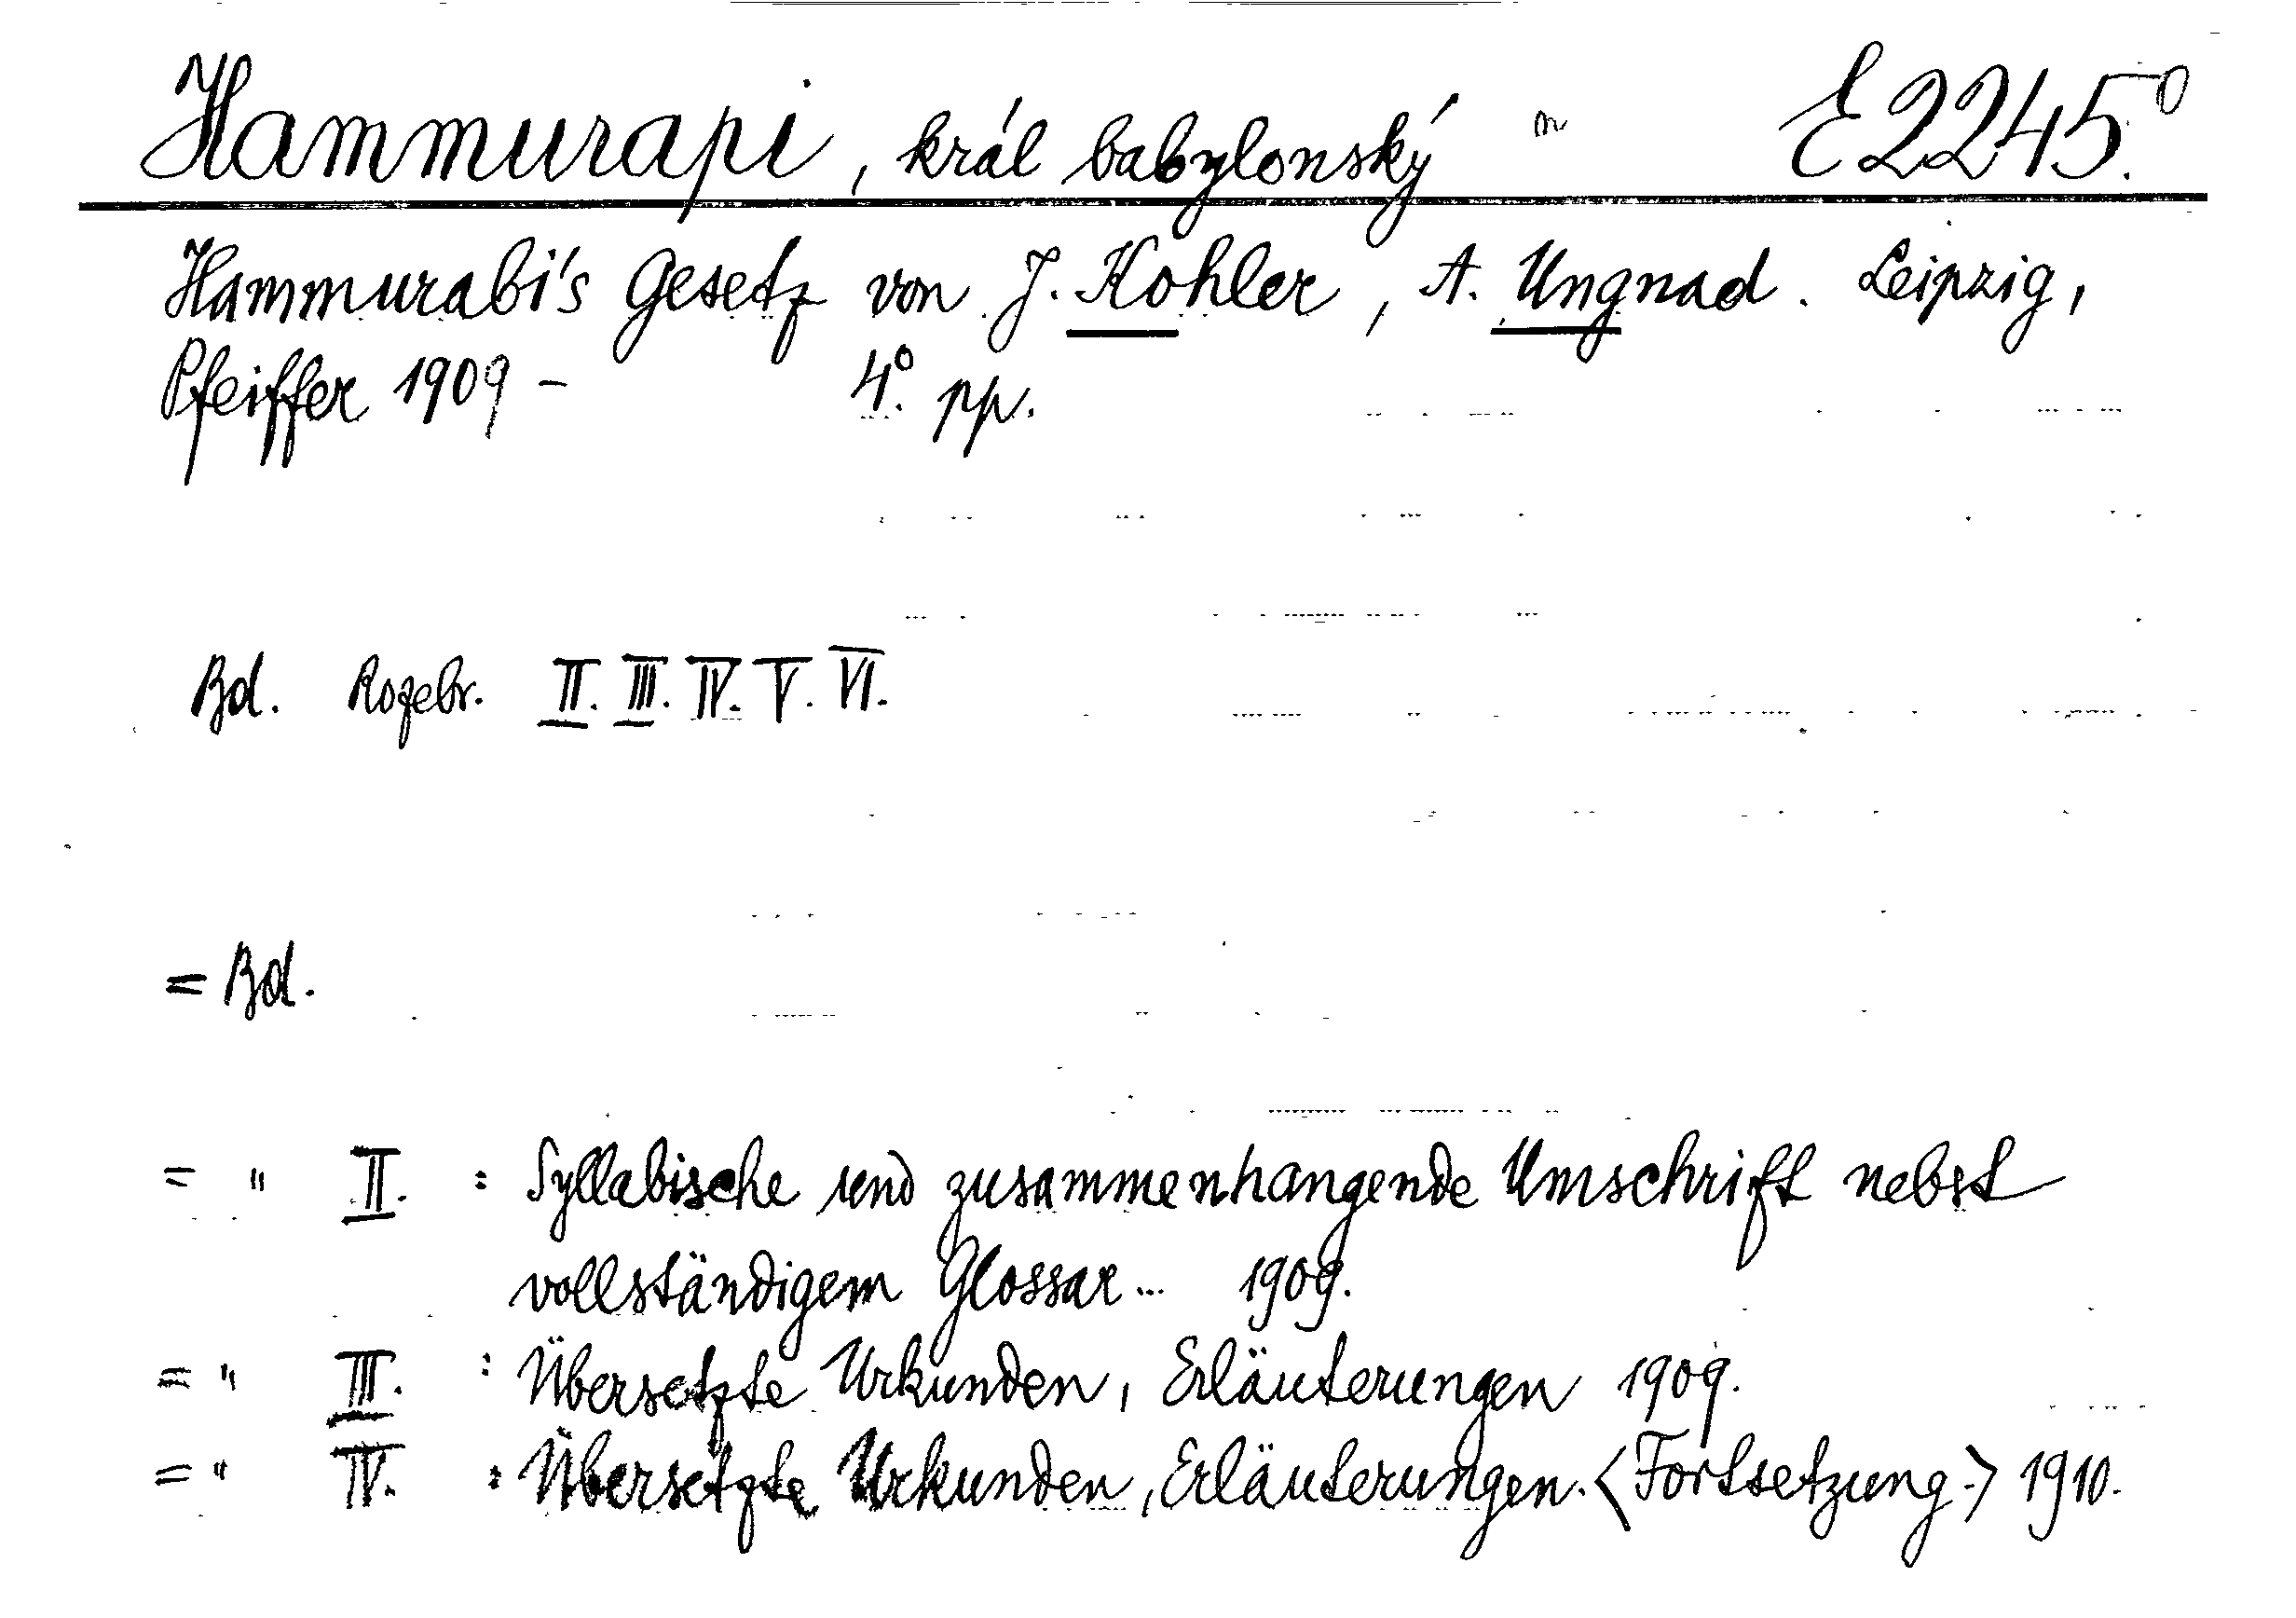 Hammurapi, král babylonský E2245.⁰
Hammurabi's Gesetz von J. Kohler, A. Ungnad. Leipzig,
Pfeiffer 1909 - 4⁰. pp.
Bd. Rozebr. II. III. IV. V. VI.
= Bd.
= " II. : Syllabische und zusammenhangende Umschrift nebst
vollständigem Glossar... 1909.
= " III. : Übersetzte Urkunden, Erläuterungen 1909.
= " IV. : Übersetzte Urkunden, Erläuterungen. <Fortsetzung.> 1910.